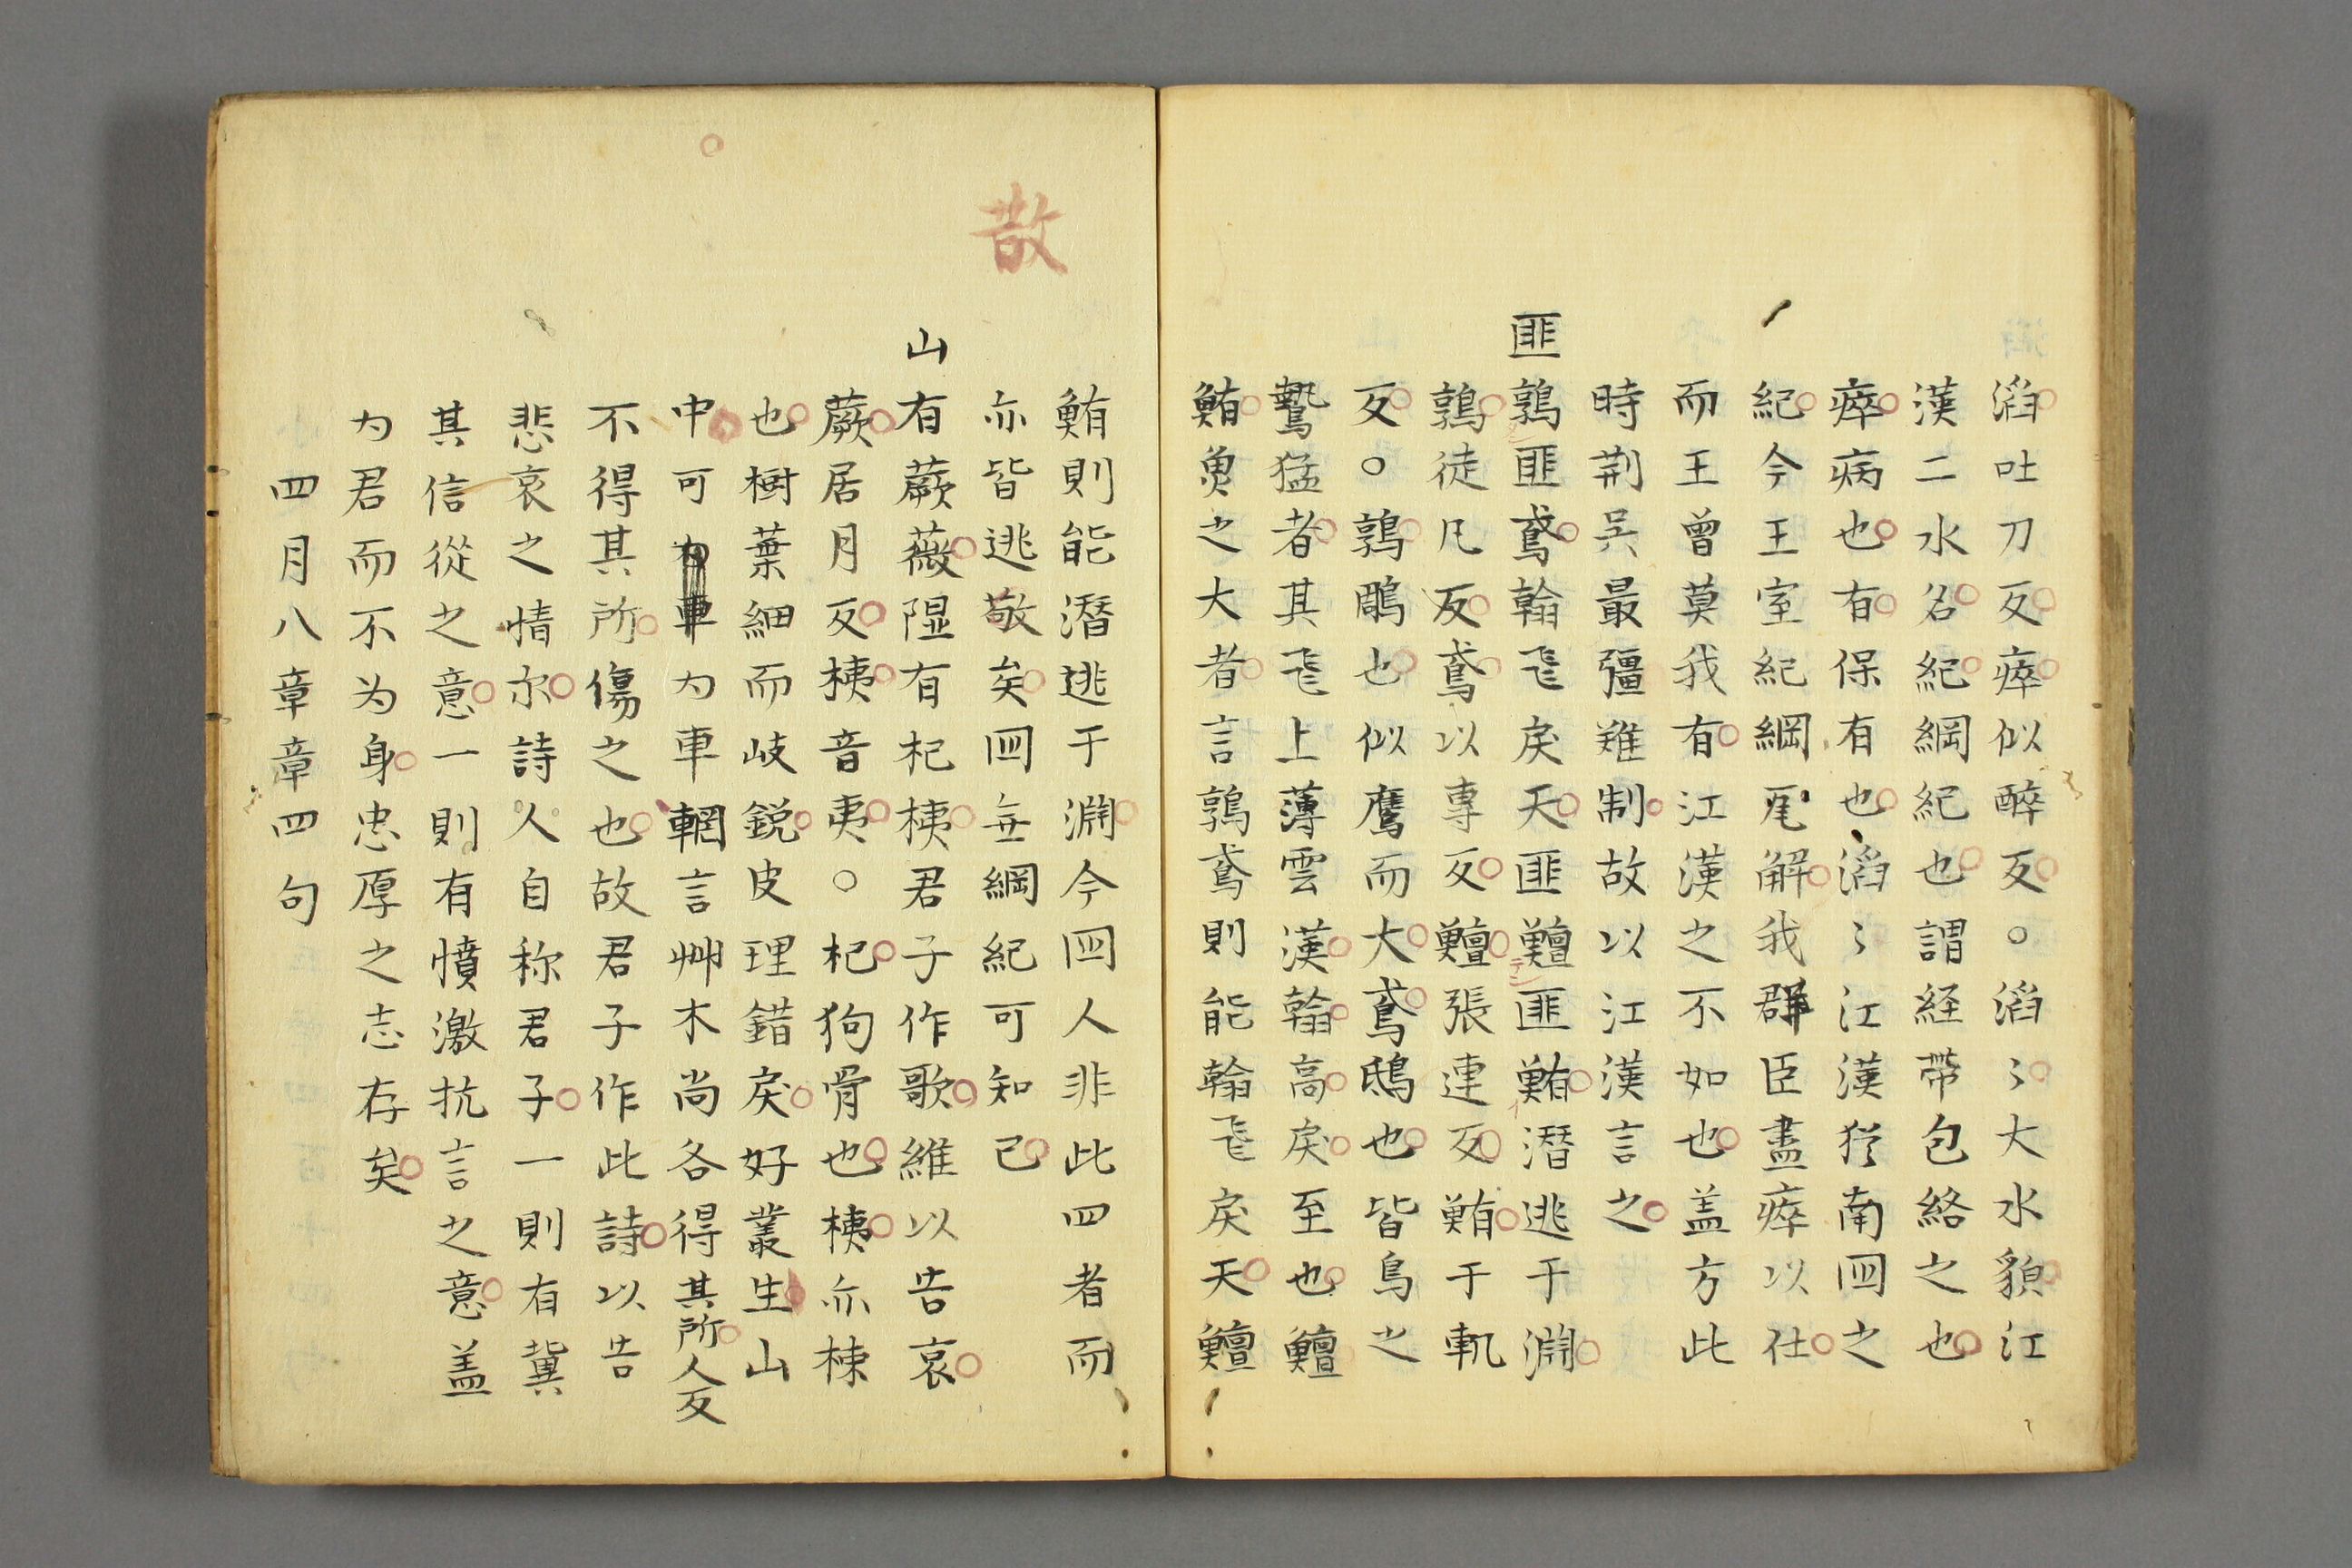 滔吐刀反瘁似醉反。滔〻大水貌江
漢二水名紀綱紀也謂経帶包絡之也
瘁病也有保有也滔〻江漢猶南囯之
紀今王室紀綱尾解我群臣盡瘁以仕
而王曾莫我有江漢之不如也盖方此
時荆呉最彊難制故以江漢言之
匪鶉匪鳶翰飛戾天匪鱣匪鮪潜逃于淵
鶉徒凡反鳶以専反鱣張連反鮪于軌
反。鶉鵰也似鷹而大鳶鴟也皆鳥之
鷙猛者其飛上薄雲漢翰高戾至也鱣
鮪魚之大者言鶉鳶則能翰飛戾天鱣
鮪則能潜逃于淵今囯人非此四者而
亦皆逃散矣囯無綱紀可知已
散
山有蕨薇隰有杞桋君子作歌維以告哀
蕨居月反桋音夷。杞狗骨也桋亦梀
也樹葉細而岐鋭皮理錯戾好叢生山
中可为車为車輞言艸木尚各得其所人反
不得其所傷之也故君子作此詩以告
悲哀之情尔詩人自称君子一則有冀
其信従之意一則有憤激抗言之意盖
为君而不为身忠厚之志存矣
四月八章章四句